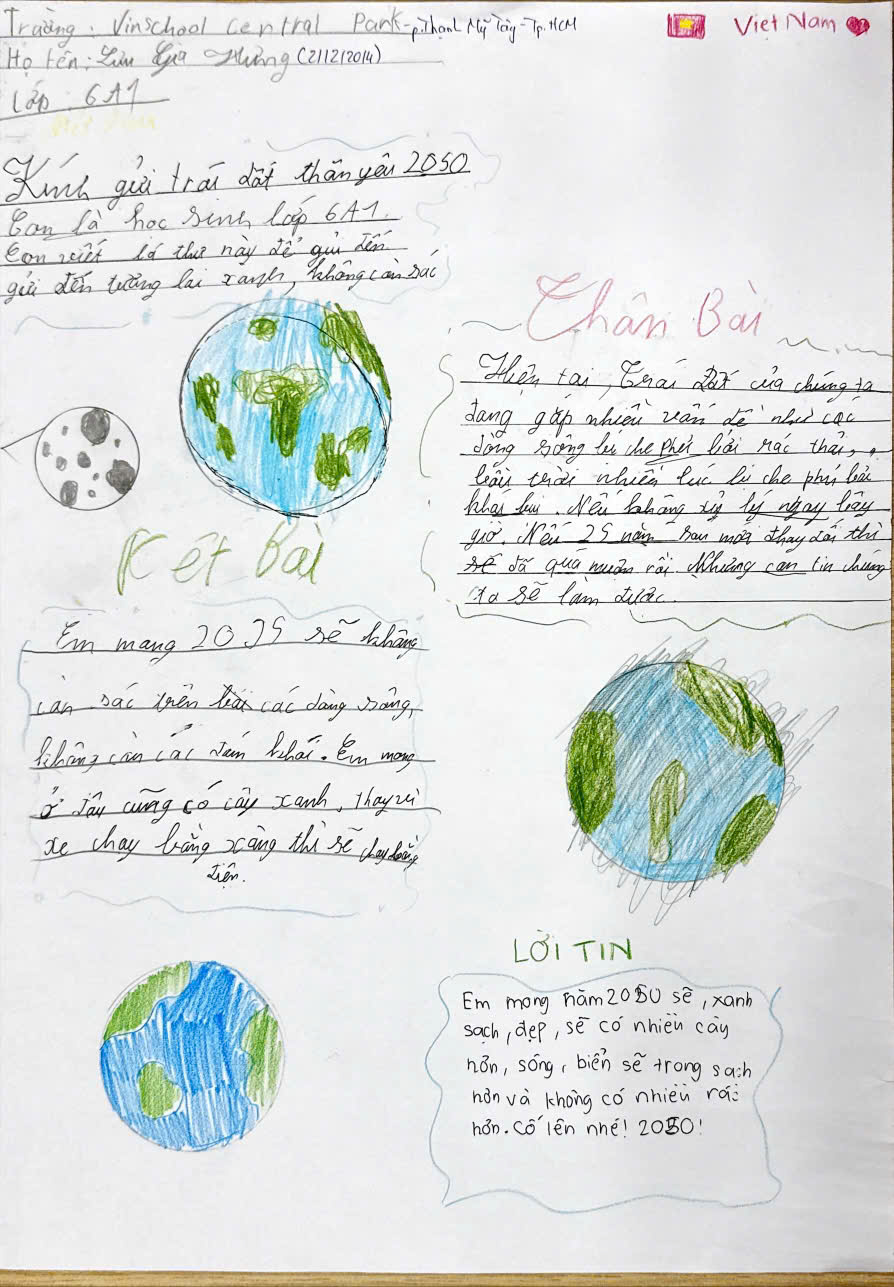 Trường: Vinschool Central Park - p. Thạnh Mỹ Tây - Tp. HCM
Việt Nam
Họ tên: Lưu Gia Hưng (2/12/2014)
Lớp: 6A1
Kính gửi trái đất thân yêu 2050
Con là học sinh lớp 6A1.
Con viết lá thư này để gửi đến
gửi đến tương lai xanh, không còn rác
Thân Bài
Hiện tại, Trái Đất của chúng ta
đang gặp nhiều vấn đề như các
dòng sông bị che phủ bởi rác thải,
bầu trời nhiều lúc bị che phủ bởi
khói bụi. Nếu không xử lý ngay bây
giờ. Nếu 25 năm sau mới thay đổi thì
sẽ đã quá muộn rồi. Nhưng con tin chúng
ta sẽ làm được.
Kết bài
Em mong 2035 sẽ không
còn rác trên các dòng sông,
không còn các đám khói. Em mong
ở đâu cũng có cây xanh, thay vì
xe chạy bằng xăng thì sẽ chạy bằng
điện.
LỜI TIN
Em mong năm 2050 sẽ, xanh
sạch, đẹp, sẽ có nhiều cây
hơn, sông, biển sẽ trong sạch
hơn và không có nhiều rác
hơn. Cố lên nhé! 2050!